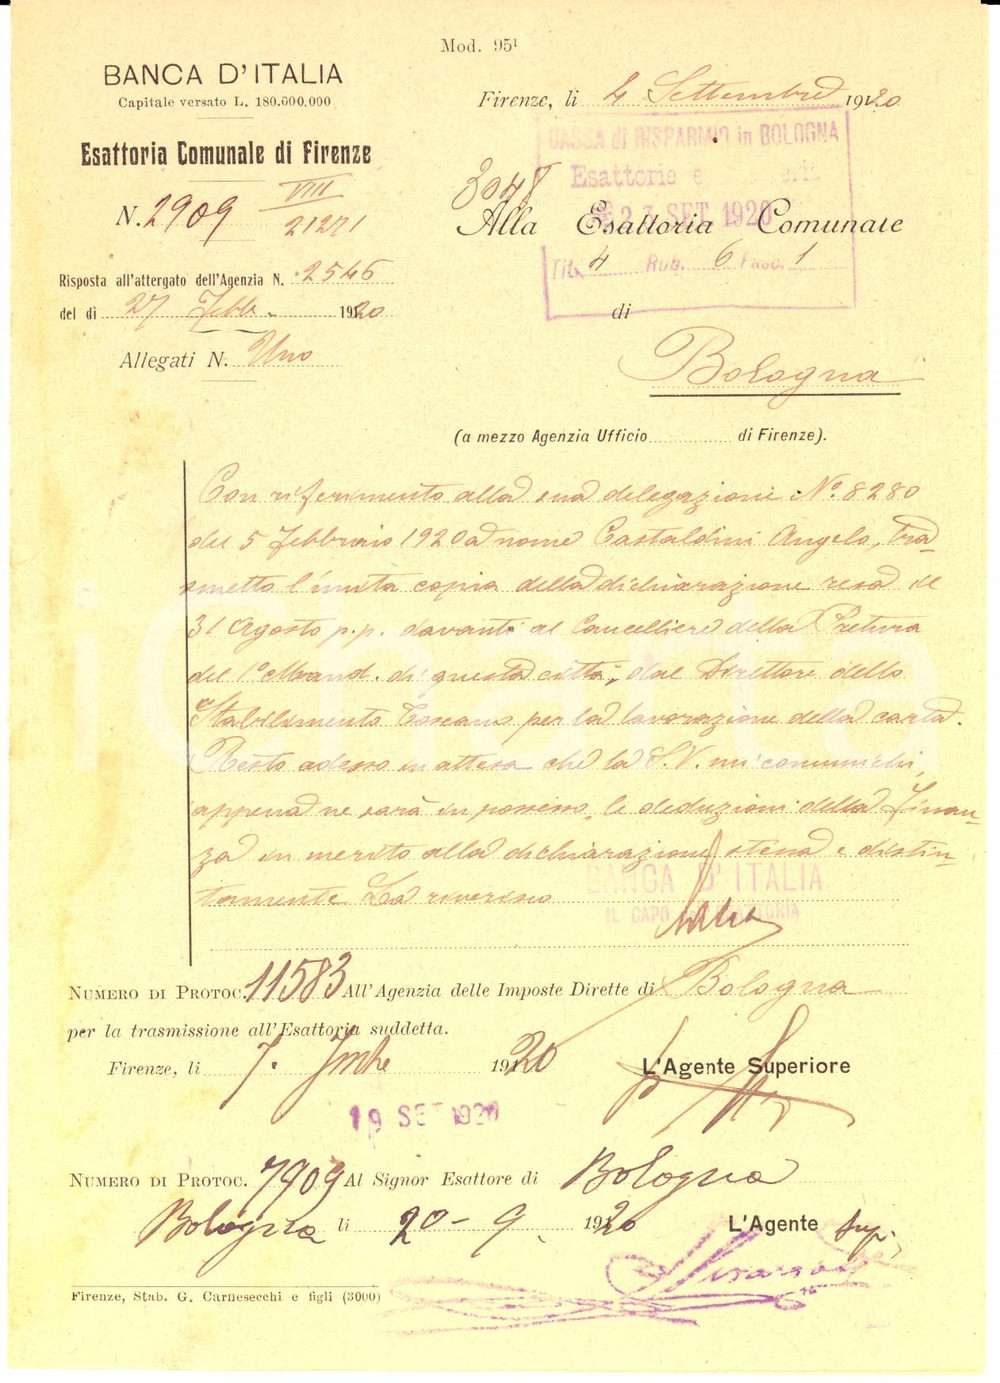 Mod. 95¹
BANCA D'ITALIA
Capitale versato L. 180.000.000
Esattoria Comunale di Firenze
N. 2909 VIII
21271
Risposta all'attergato dell'Agenzia N. 2546
del dì 27 Febb. 1920
Allegati N. Uno
Firenze, li 4 Settembre 1920
CASSA di RISPARMIO in BOLOGNA
Esattorie e
23 SET 1920
Tit. 4 Rub. 6 Fasc. 1
3048
Alla Esattoria Comunale
di
Bologna
(a mezzo Agenzia Ufficio di Firenze).
Con riferimento alla sua delegazione N.° 8280
del 5 Febbraio 1920 a nome Castaldini Angelo, tra-
smetto l'unita copia della dichiarazione resa il
31 Agosto p.p. davanti al Cancelliere della Pretura
del 1° Mand. di questa città, dal Direttore dello
Stabilimento Toscano per la lavorazione della carta.
Resto adesso in attesa che la S.V. mi comunichi,
appena ne sarà in possesso, le deduzioni della Finan-
za in merito alla dichiarazione stessa e distin-
tamente La riverisco
BANCA D'ITALIA
IL CAPO
NUMERO DI PROTOC. 11583 All'Agenzia delle Imposte Dirette di Bologna
per la trasmissione all'Esattoria suddetta.
Firenze, li 7. 1920
L'Agente Superiore
19 SET 1920
NUMERO DI PROTOC. 7909 Al Signor Esattore di Bologna
Bologna li 20 - 9 1920 L'Agente Sup.
Firenze, Stab. G. Carnesecchi e figli (3000)